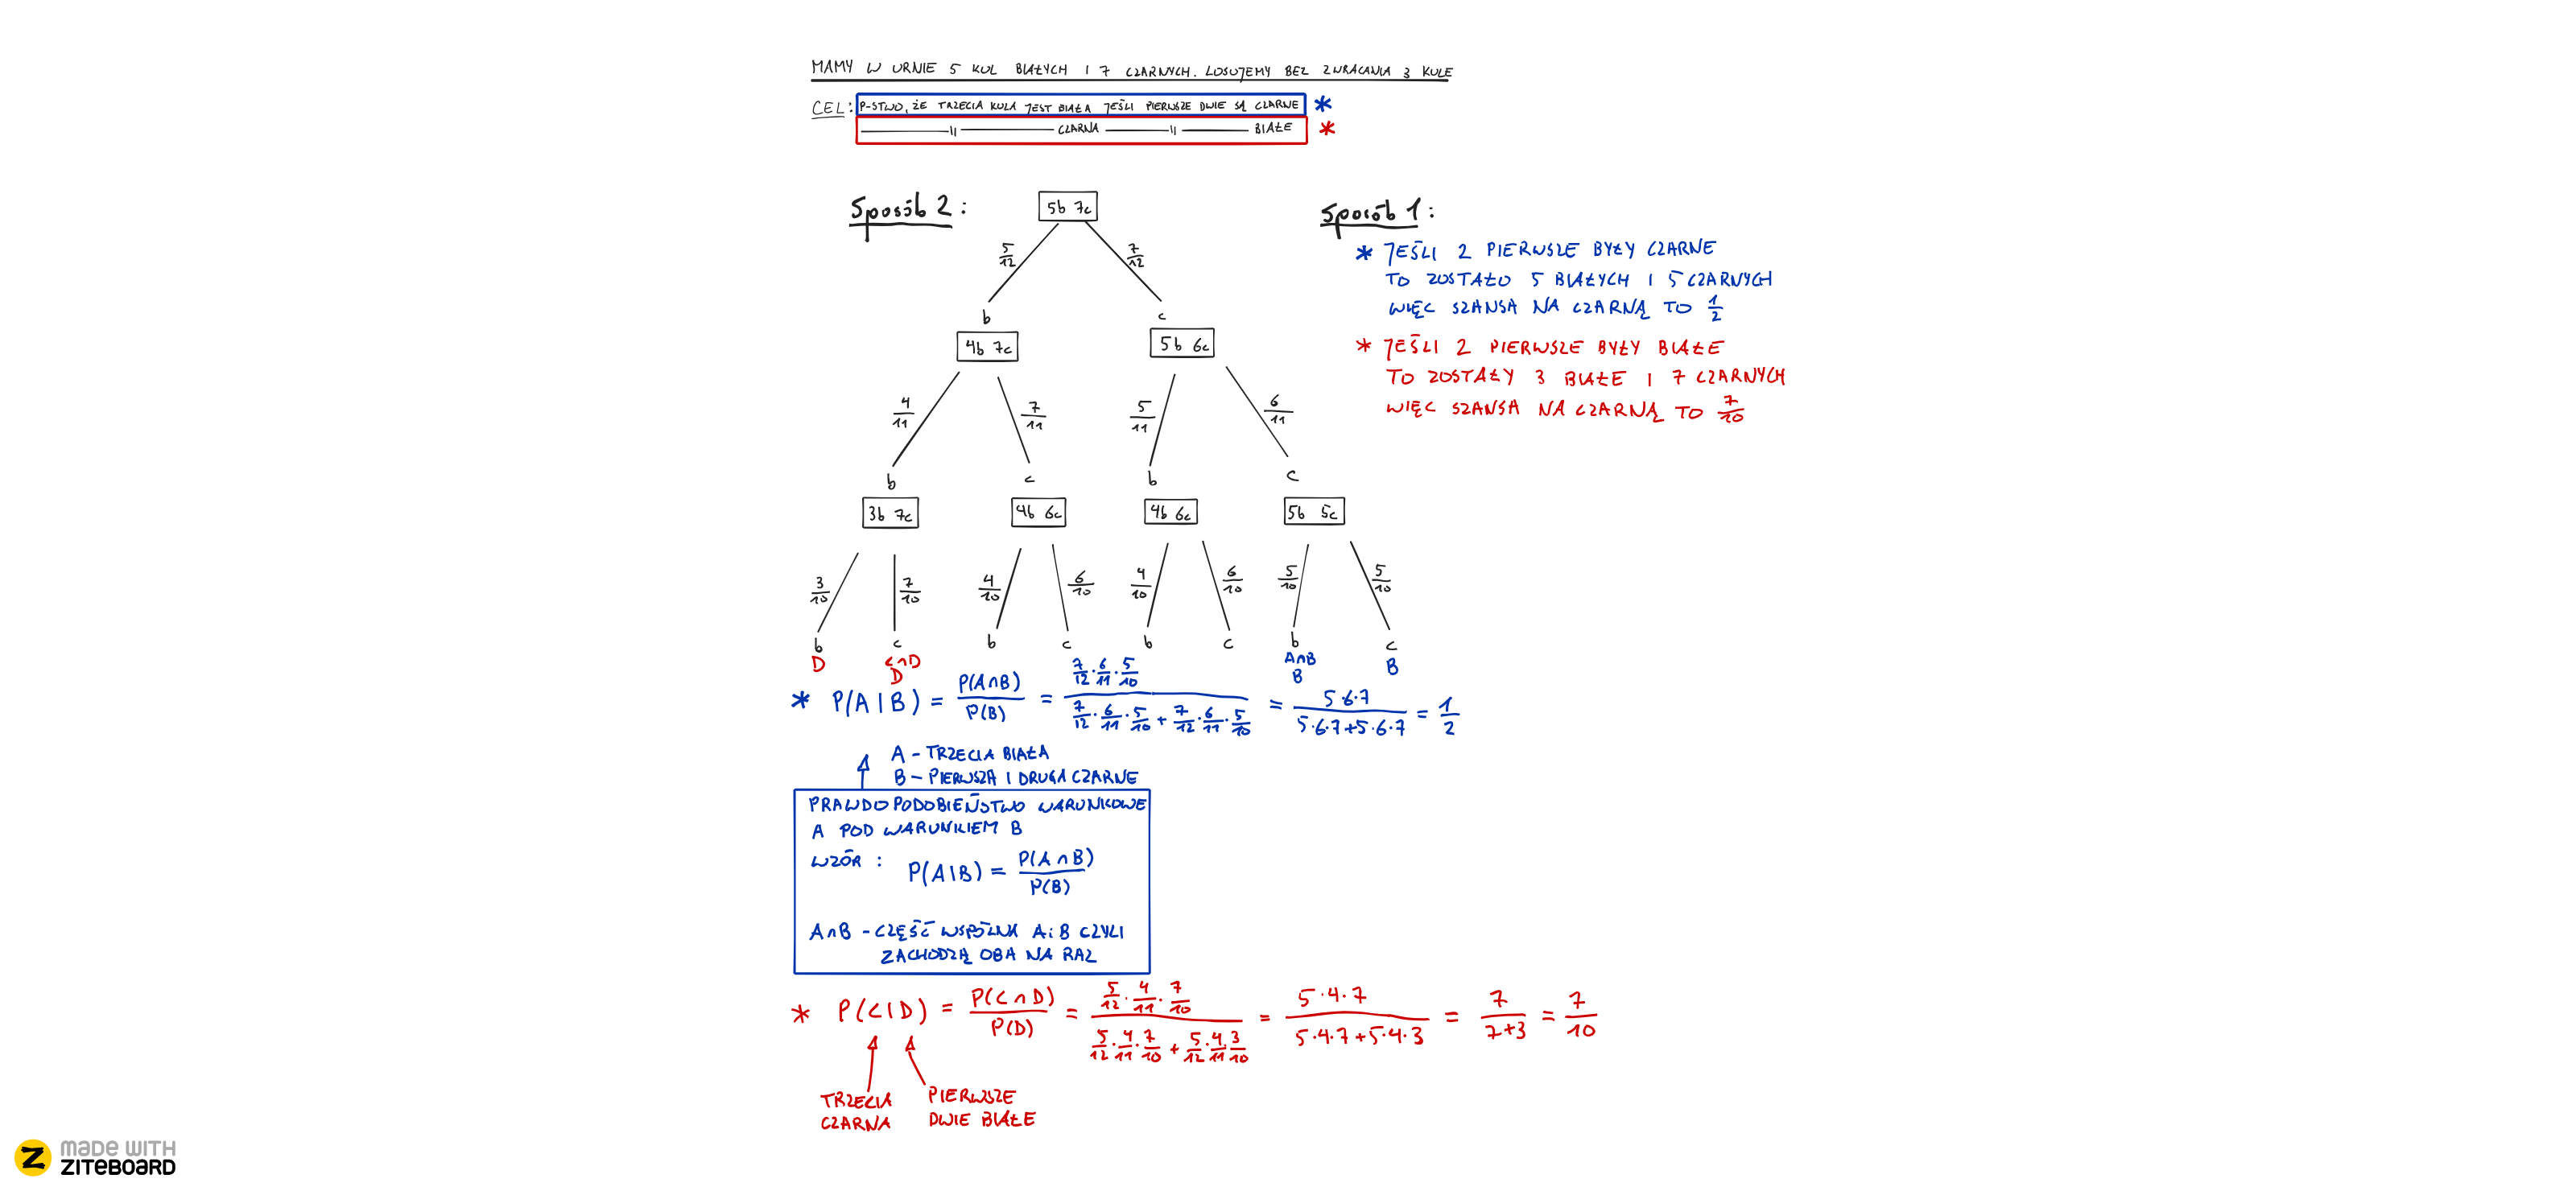 MAMY W URNIE 5 KUL BIAŁYCH I 7 CZARNYCH. LOSUJEMY BEZ ZWRACANIA 3 KULE
CEL: P-STWO, ŻE TRZECIA KULA JEST BIAŁA JEŚLI PIERWSZE DWIE SĄ CZARNE *
—— || —— CZARNA —— || —— BIAŁE *
Sposób 2:
5b 7c
5/12 7/12
b c
4b 7c 5b 6c
4/11 7/11 5/11 6/11
b c b c
3b 7c 4b 6c 4b 6c 5b 5c
3/10 7/10 4/10 6/10 4/10 6/10 5/10 5/10
b c b c b c b c
D C∩D A∩B B
D B
Sposób 1:
* JEŚLI 2 PIERWSZE BYŁY CZARNE
TO ZOSTAŁO 5 BIAŁYCH I 5 CZARNYCH
WIĘC SZANSA NA CZARNĄ TO 1/2
* JEŚLI 2 PIERWSZE BYŁY BIAŁE
TO ZOSTAŁY 3 BIAŁE I 7 CZARNYCH
WIĘC SZANSA NA CZARNĄ TO 7/10
* P(A|B) = P(A∩B)/P(B) = (7/12·6/11·5/10)/(7/12·6/11·5/10 + 7/12·6/11·5/10) = 5·6·7/(5·6·7+5·6·7) = 1/2
A - TRZECIA BIAŁA
B - PIERWSZA I DRUGA CZARNE
PRAWDOPODOBIEŃSTWO WARUNKOWE
A POD WARUNKIEM B
WZÓR : P(A|B) = P(A∩B)/P(B)
A∩B - CZĘŚĆ WSPÓLNA A i B CZYLI
ZACHODZĄ OBA NA RAZ
* P(C|D) = P(C∩D)/P(D) = (5/12·4/11·7/10)/(5/12·4/11·7/10 + 5/12·4/11·3/10) = 5·4·7/(5·4·7+5·4·3) = 7/(7+3) = 7/10
TRZECIA
CZARNA
PIERWSZE
DWIE BIAŁE
Z MADE WITH
ZITEBOARD